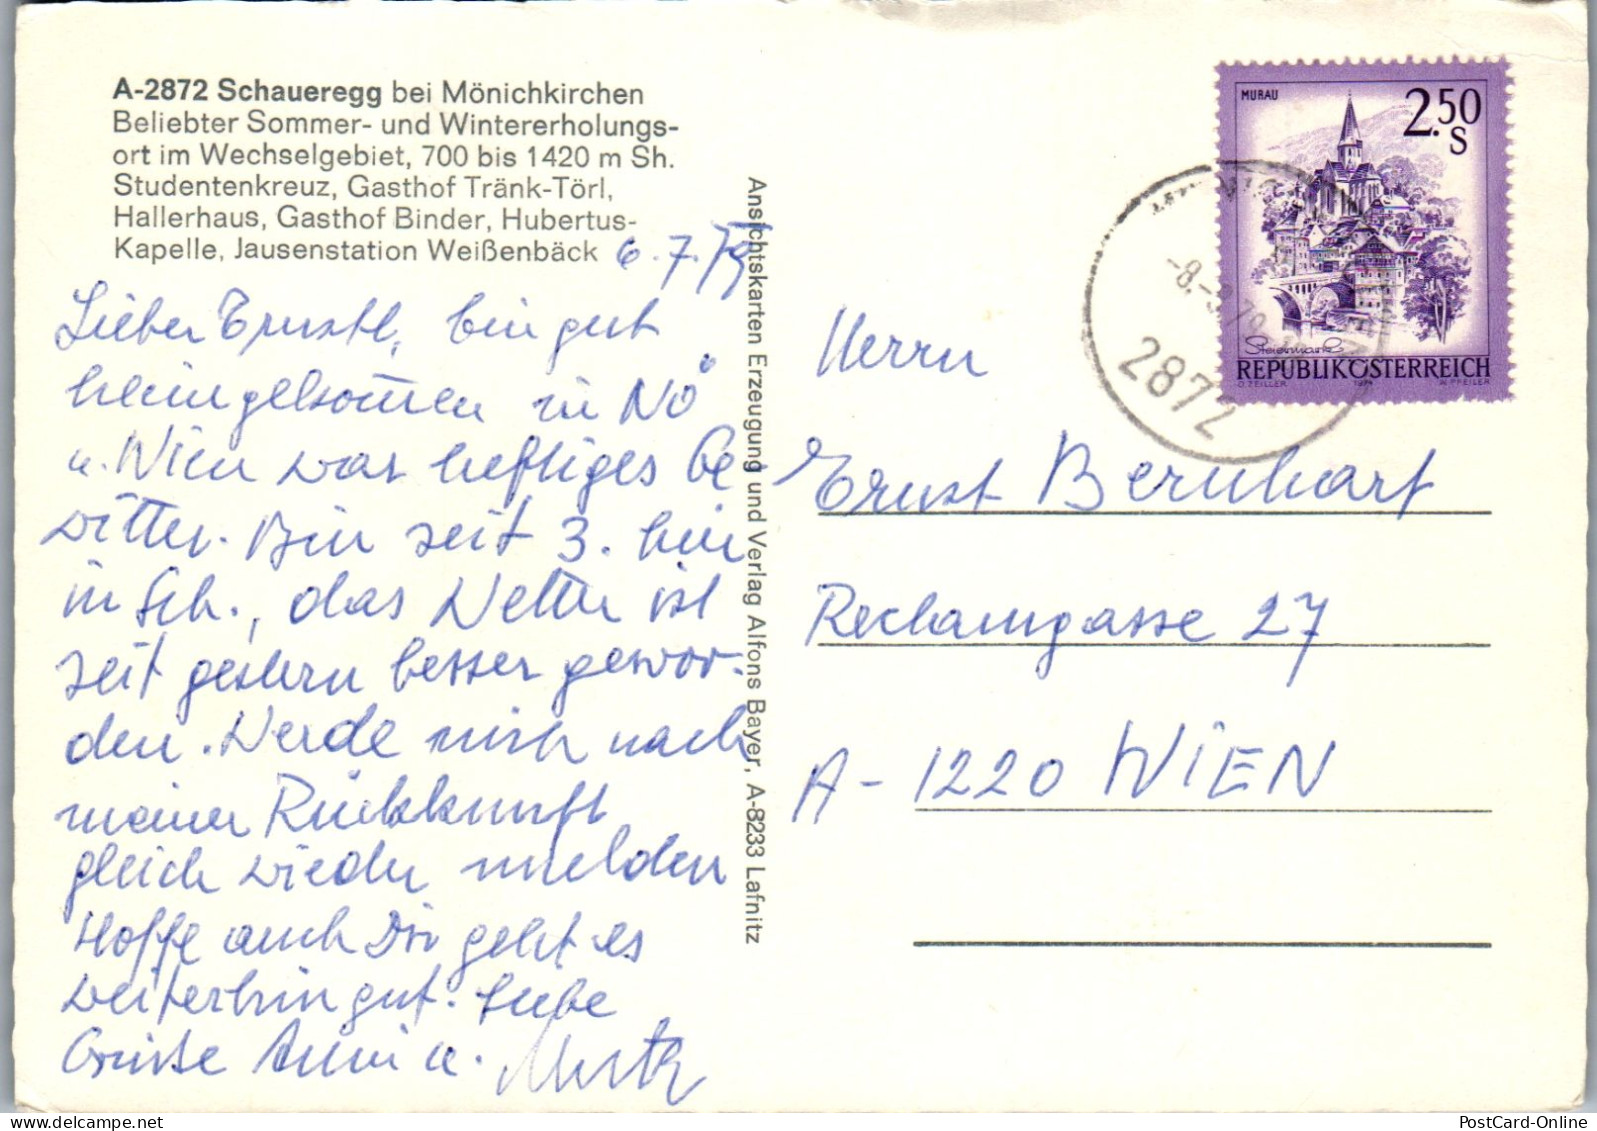 A-2872 Schaueregg bei Mönichkirchen
Beliebter Sommer- und Wintererholungs-
ort im Wechselgebiet, 700 bis 1420 m Sh.
Studentenkreuz, Gasthof Tränk-Törl,
Hallerhaus, Gasthof Binder, Hubertus-
Kapelle, Jausenstation Weißenbäck
6.7.79
Lieber Ernstl, bin gut
heimgekommen in NÖ
u. Wien war heftiges Ge
witter. Bin seit 3. hier
in Sch., das Wetter ist
seit gestern besser gewor-
den. Werde mich nach
meiner Rückkunft
gleich wieder melden
Hoffe auch Dir geht es
weiterhin gut. Liebe
Grüsse Anni u.
Ansichtskarten Erzeugung und Verlag Alfons Bayer, A-8233 Lafnitz
MURAU
2.50
S
Steiermark
REPUBLIK ÖSTERREICH
O. ZEILLER 1974 W. PFEILER
2872
Herrn
Ernst Bernhart
Rechamgasse 27
A-1220 WIEN
PostCard-Online